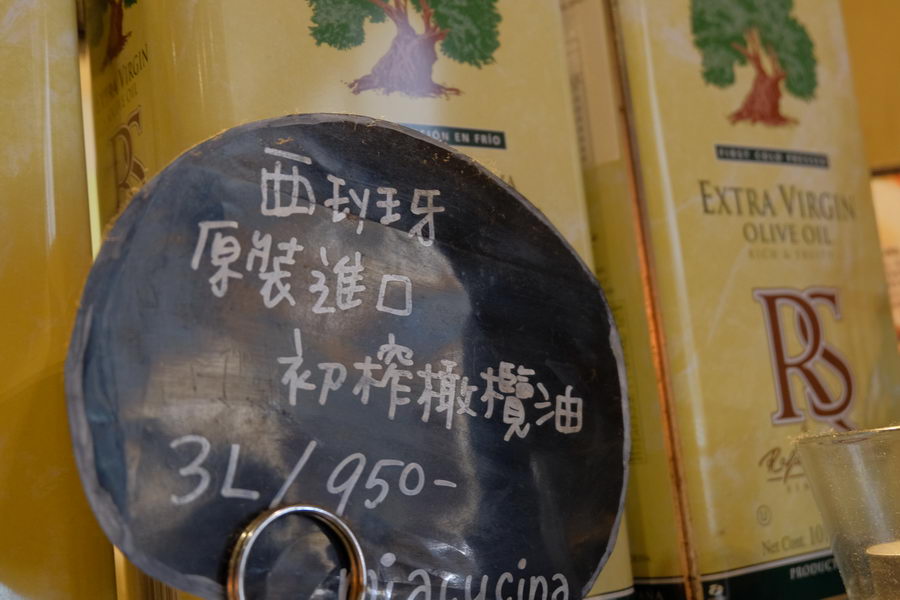 西班牙
原裝進口
初榨橄欖油
3L/950-
miacucina
EXTRA VIRGIN
CIÓN EN FRÍO
FIRST COLD PRESSED
EXTRA VIRGIN
OLIVE OIL
RICH & FRUITY
RS
Net Cont. 10
PRODUC